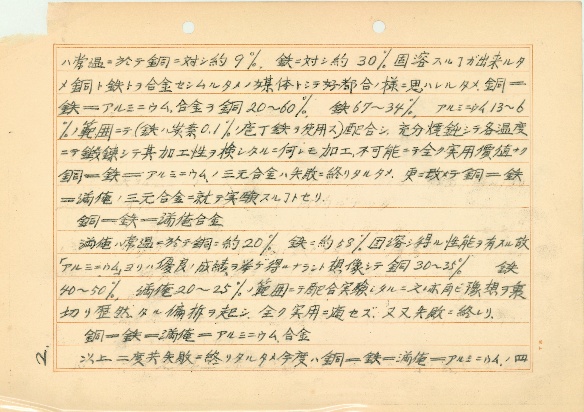 ハ常温ニ於テ銅ニ対シ約9%. 鉄ニ対シ約30%固溶スルヿガ出来ルタ
メ銅ト鉄トヲ合金センムルタメノ媒体トシテ好都合ノ様ニ思ハレルタメ. 銅=
鉄=アルミニウム.合金ヲ銅20~60%. 鉄67~34%. アルミニウム13~6
%ノ範囲ニテ(鉄ハ炭素0.1%ノ庖丁鉄ヲ使用ス)配合シ. 充分燥鈍シテ各温度
ニテ鍛錬シテ其加工性ヲ検シタルニ何レモ加工.不可能ニテ全ク実用価値ナク
銅=鉄=アルミニウム.ノ三元合金ハ失敗ニ終リタルタメ. 更ニ改メテ銅=鉄
=満俺ノ三元合金ニ就テ実験スルヿトセリ.
銅=鉄=満俺合金
満俺ハ常温ニ於テ銅ニ約20%. 鉄ニ約18%固溶シ得ル性能ヲ有スル故
「アルミニウム」ヨリハ優良ノ成績ヲ挙ゲ得ルナラント想像シテ銅30~35% 鉄
40~50%. 満俺20~25%ノ範囲ニテ配合実験シタルニ之亦再ビ予想ヲ裏
切リ歴然タル偏拆ヲ起シ. 全ク実用ニ適セズ. 又々失敗ニ終レリ.
銅=鉄=満俺=アルミニウム.合金
以上二度共失敗ニ終リタルタメ今度ハ銅=鉄=満俺=アルミニウム.ノ四
2.